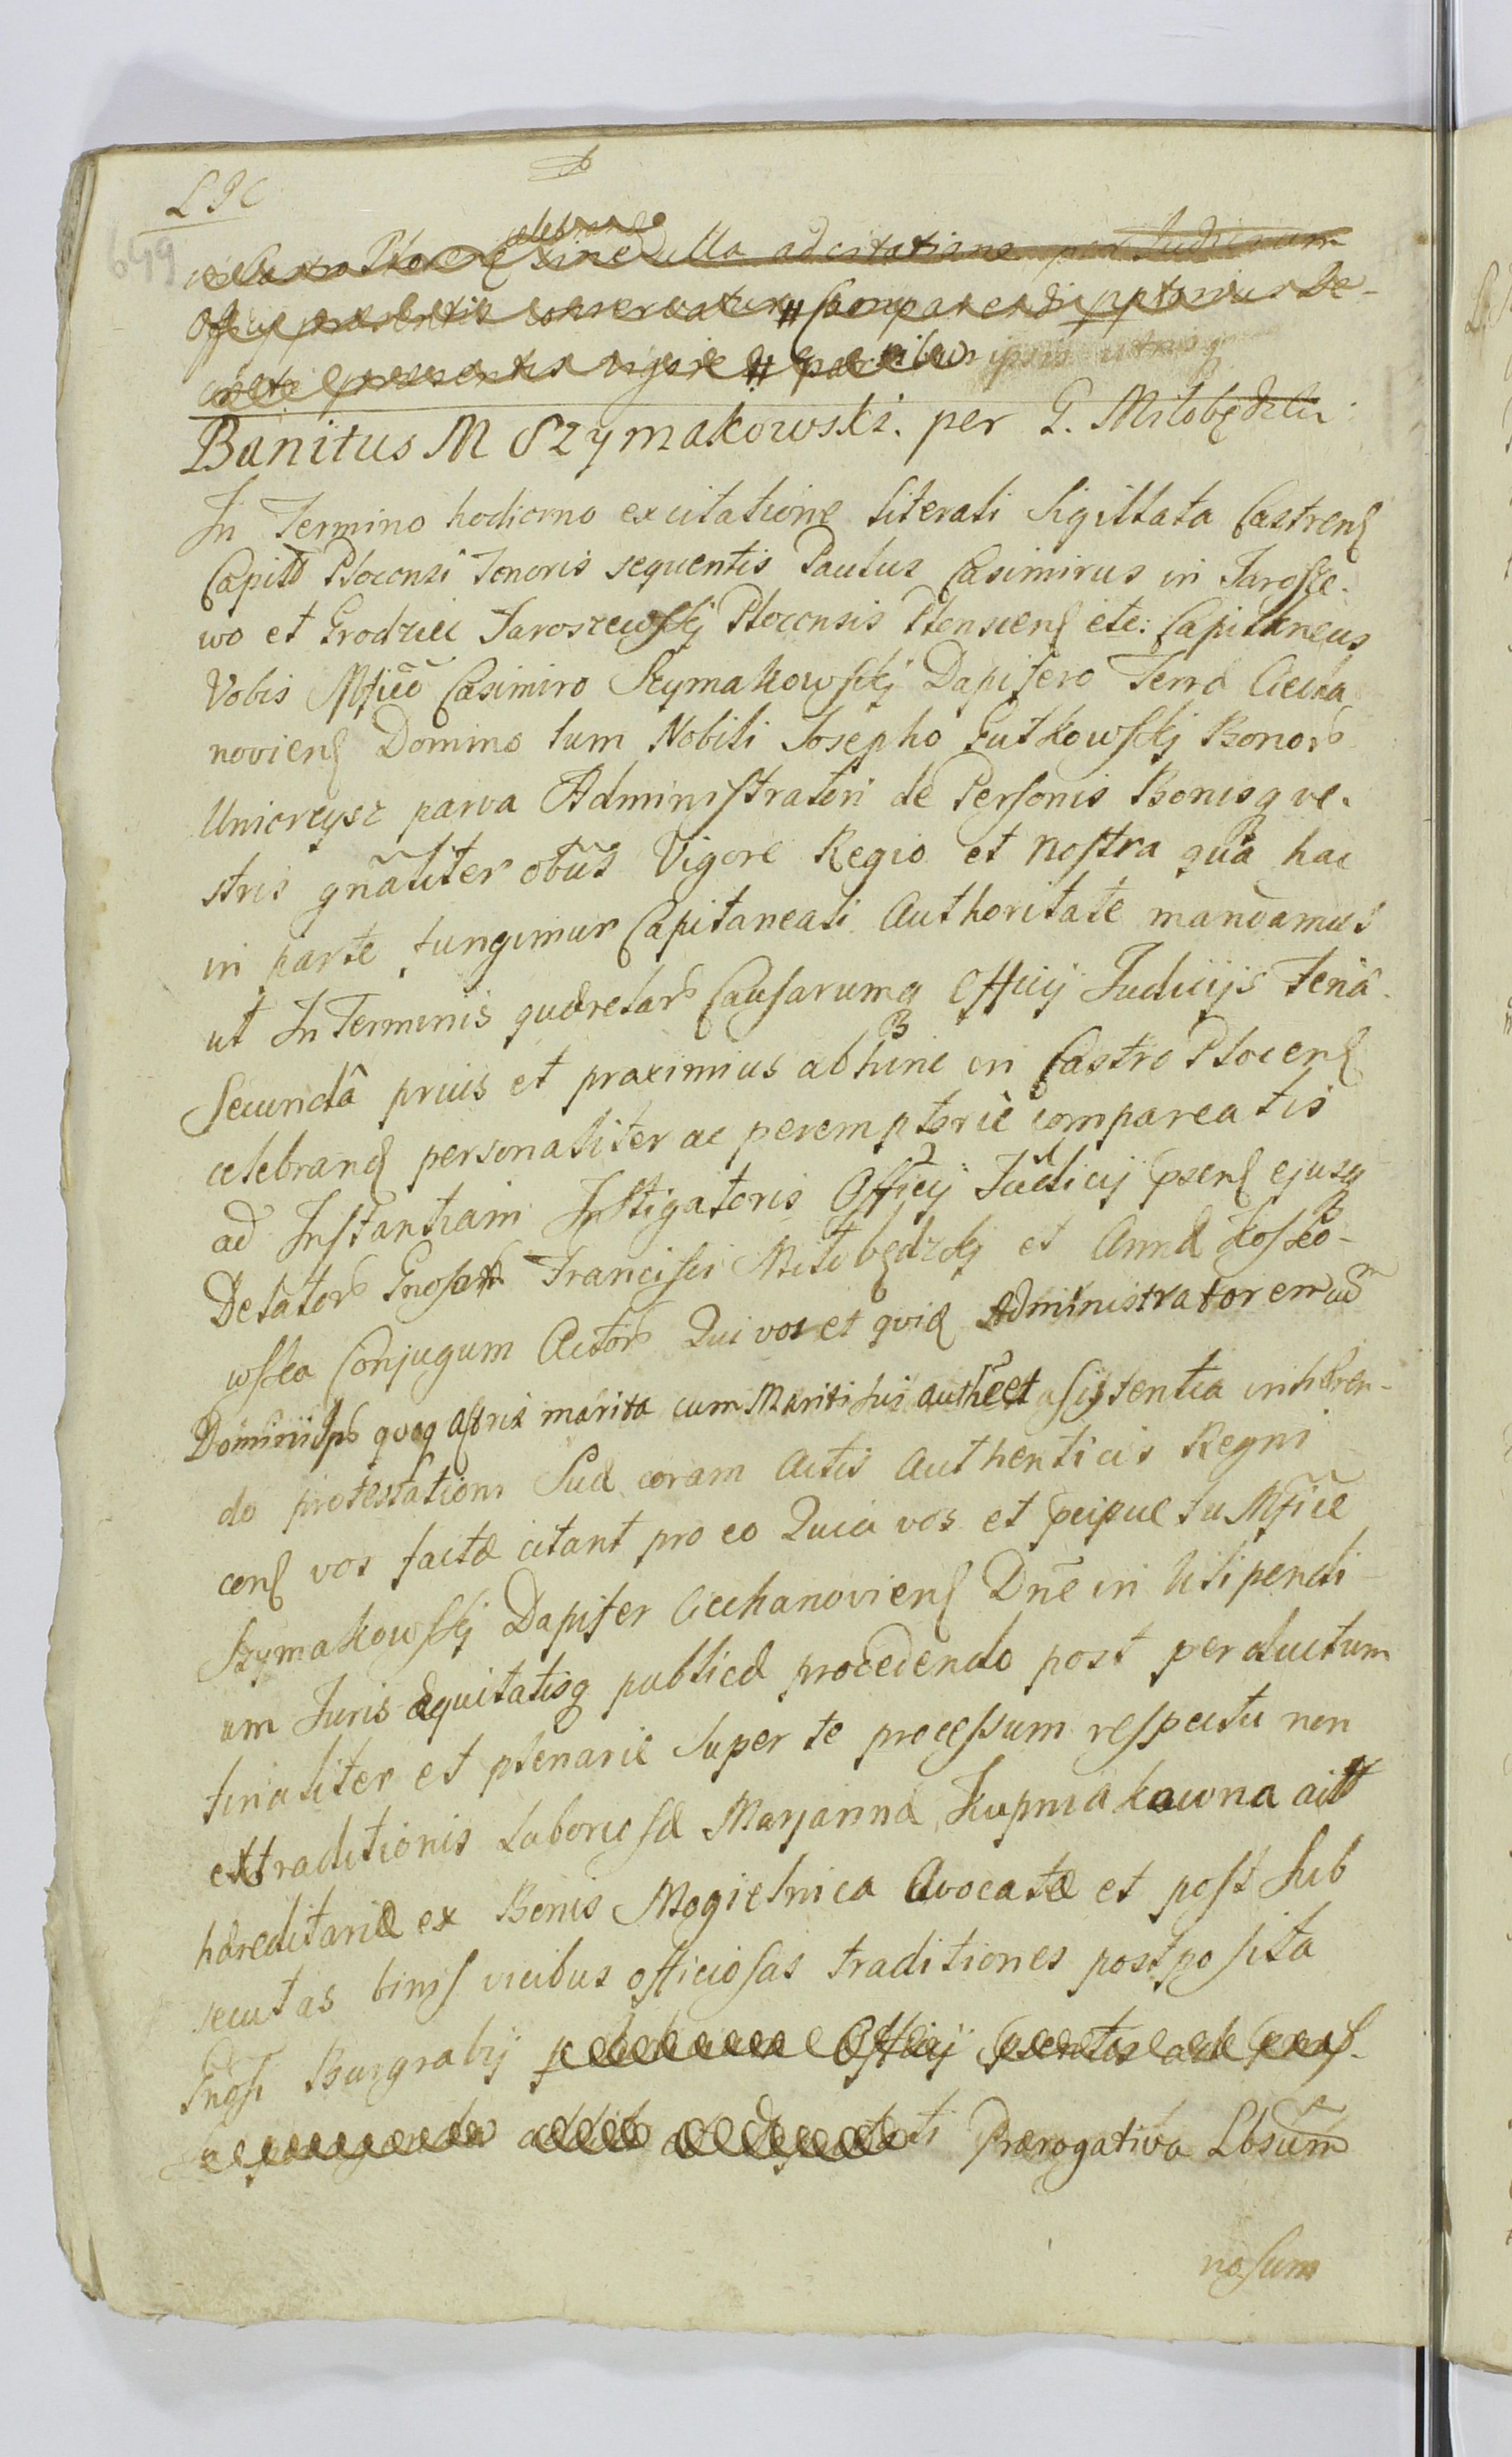 LIC
699
celebrando
in Castro Plocen sine ulla adcitatione per Judicium
Officij præsentis conservatur # Comparendi pptorius De-
creti præsentis vigore # partibus ipsis utrisq
Banitus M Szymakowski. per G. Miłobędzki
In Termino hodierno ex citatione literali Sigillata Castren
Capitt Plocensi Tenoris sequentis Paulus Casimirus in Jarosze-
wo et Grodziec Jaroszewsky Plocensis Plonscen etc: Capitaneus
Vobis Mfico Casimiro Szymakowsky Dapifero Terræ Ciecha
novien Domino tum Nobili Josepho Gutkowsky Bonor
Unicreysz parva Administratori de Personis Bonisq ve-
stris gnaliter obus Vigore Regio et nostra qua hac
in parte fungimur Capitaneali Authoritate mandamus
ut In Terminis quærelar Causarumq Officij Judicijs Feria
Secunda prius et proximius abhinc in Castro Plocen
celebrand personaliter ac peremptorie compareatis
ad Instantiam Instigatoris Officij Judicij psen ejusq
Delator Gnosor Francisci Miłobędzky et Annæ Kosko-
wska Conjugum Actor Qui vos et quid Administratorem ad
Dominij Ips quoq Astrix marita cum Mariti sui authe et assistentia inhæren-
do protestationi Suæ coram Actis Authenticis Regni
con vos factæ citant pro eo Quia vos et pcipue tu Mfice
Szymakowsky Dapifer Ciechanovien Dne in vilipendi-
um Juris æquitatisq publicæ procedendo post perductum
finaliter et plenarie super te processum respectu non
extraditionis Laboriosæ Maryannæ Kupniakowna aitt
hæreditariæ ex Bonis Mogielnica Avocatæ et post sub
secutas binis vicibus officiosas traditiones postposita
Gnosi Burgrabij Officij
Prærogativa Lbsum
nosum